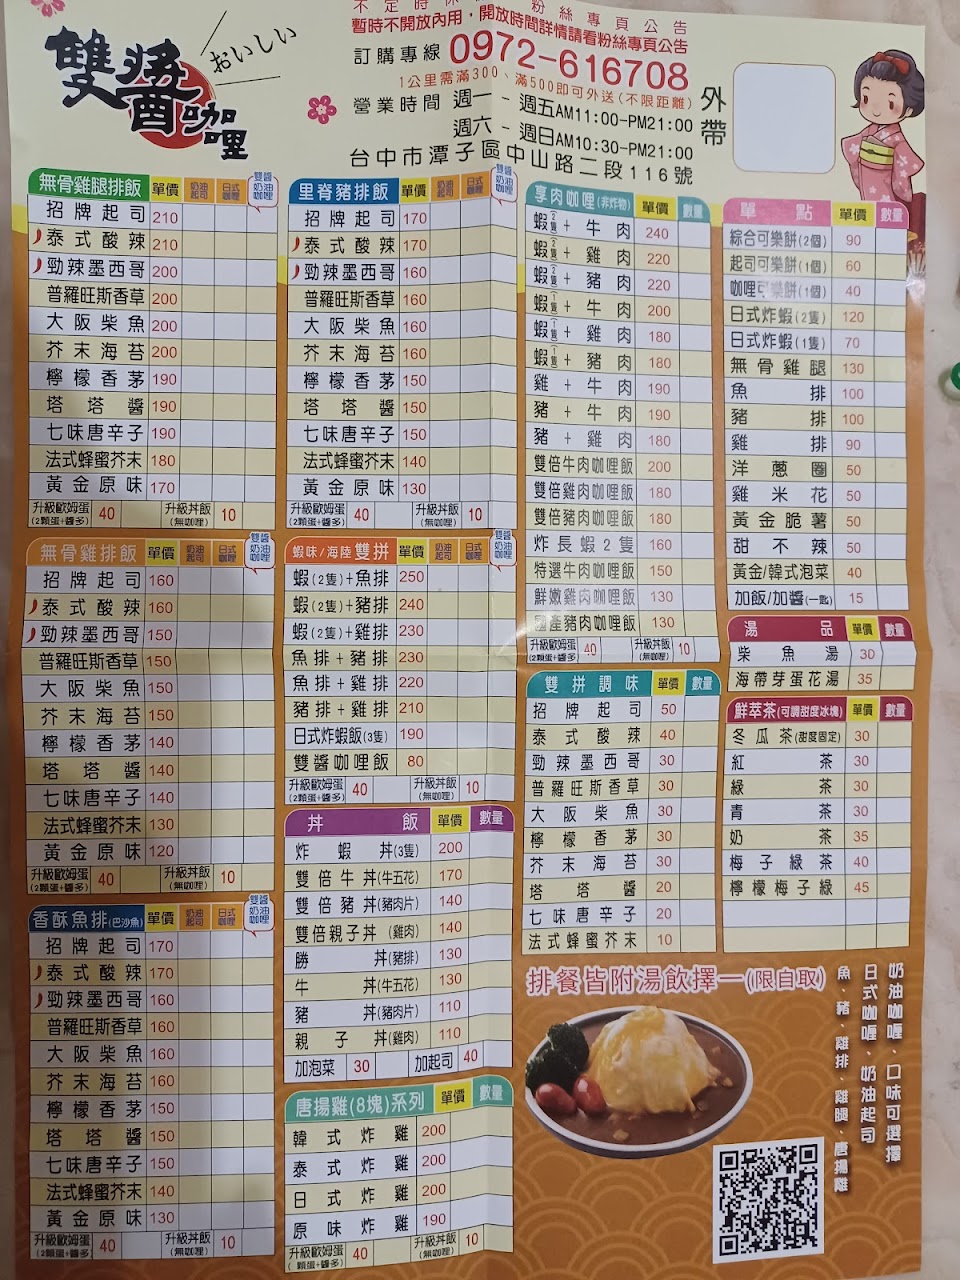 雙醬咖哩
おいしい
粉絲專頁公告
暫時不開放內用，開放時間詳情請看粉絲專頁公告
訂購專線 0972-616708
1公里需滿300、滿500即可外送(不限距離)
營業時間 週一 - 週五AM11:00-PM21:00
週六 - 週日AM10:30-PM21:00
台中市潭子區中山路二段116號
外帶
無骨雞腿排飯 單價 奶油起司 日式咖哩 雙醬奶油咖哩
招牌起司 210
泰式酸辣 210
勁辣墨西哥 200
普羅旺斯香草 200
大阪柴魚 200
芥末海苔 200
檸檬香茅 190
塔塔醬 190
七味唐辛子 190
法式蜂蜜芥末 180
黃金原味 170
升級歐姆蛋(2顆蛋+醬多) 40 升級丼飯(無咖哩) 10
無骨雞排飯 單價 奶油起司 日式咖哩 雙醬奶油咖哩
招牌起司 160
泰式酸辣 160
勁辣墨西哥 150
普羅旺斯香草 150
大阪柴魚 150
芥末海苔 150
檸檬香茅 140
塔塔醬 140
七味唐辛子 140
法式蜂蜜芥末 130
黃金原味 120
升級歐姆蛋(2顆蛋+醬多) 40 升級丼飯(無咖哩) 10
香酥魚排(巴沙魚) 單價 奶油起司 日式咖哩 雙醬奶油咖哩
招牌起司 170
泰式酸辣 170
勁辣墨西哥 160
普羅旺斯香草 160
大阪柴魚 160
芥末海苔 160
檸檬香茅 150
塔塔醬 150
七味唐辛子 150
法式蜂蜜芥末 140
黃金原味 130
升級歐姆蛋(2顆蛋+醬多) 40 升級丼飯(無咖哩) 10
里脊豬排飯 單價 奶油起司 日式咖哩 雙醬奶油咖哩
招牌起司 170
泰式酸辣 170
勁辣墨西哥 160
普羅旺斯香草 160
大阪柴魚 160
芥末海苔 160
檸檬香茅 150
塔塔醬 150
七味唐辛子 150
法式蜂蜜芥末 140
黃金原味 130
升級歐姆蛋(2顆蛋+醬多) 40 升級丼飯(無咖哩) 10
蝦味/海陸雙拼 單價 奶油起司 日式咖哩 雙醬奶油咖哩
蝦(2隻)+魚排 250
蝦(2隻)+豬排 240
蝦(2隻)+雞排 230
魚排+豬排 230
魚排+雞排 220
豬排+雞排 210
日式炸蝦飯(3隻) 190
雙醬咖哩飯 80
升級歐姆蛋(2顆蛋+醬多) 40 升級丼飯(無咖哩) 10
丼飯 單價 數量
炸蝦丼(3隻) 200
雙倍牛丼(牛五花) 170
雙倍豬丼(豬肉片) 140
雙倍親子丼(雞肉) 140
勝丼(豬排) 130
牛丼(牛五花) 130
豬丼(豬肉片) 110
親子丼(雞肉) 110
加泡菜 30 加起司 40
唐揚雞(8塊)系列 單價 數量
韓式炸雞 200
泰式炸雞 200
日式炸雞 200
原味炸雞 190
升級歐姆蛋(2顆蛋+醬多) 40 升級丼飯(無咖哩) 10
享肉咖哩(非炸物) 單價 數量
蝦(2隻)+牛肉 240
蝦(2隻)+雞肉 220
蝦(2隻)+豬肉 220
蝦(1隻)+牛肉 200
蝦(1隻)+雞肉 180
蝦(1隻)+豬肉 180
雞+牛肉 190
豬+牛肉 190
豬+雞肉 180
雙倍牛肉咖哩飯 200
雙倍雞肉咖哩飯 180
雙倍豬肉咖哩飯 180
炸長蝦2隻 160
特選牛肉咖哩飯 150
鮮嫩雞肉咖哩飯 130
國產豬肉咖哩飯 130
升級歐姆蛋(2顆蛋+醬多) 40 升級丼飯(無咖哩) 10
雙拼調味 單價 數量
招牌起司 50
泰式酸辣 40
勁辣墨西哥 30
普羅旺斯香草 30
大阪柴魚 30
檸檬香茅 30
芥末海苔 30
塔塔醬 20
七味唐辛子 20
法式蜂蜜芥末 10
單點 單價 數量
綜合可樂餅(2個) 90
起司可樂餅(1個) 60
咖哩可樂餅(1個) 40
日式炸蝦(2隻) 120
日式炸蝦(1隻) 70
無骨雞腿 130
魚排 100
豬排 100
雞排 90
洋蔥圈 50
雞米花 50
黃金脆薯 50
甜不辣 50
黃金/韓式泡菜 40
加飯/加醬(一匙) 15
湯品 單價 數量
柴魚湯 30
海帶芽蛋花湯 35
鮮萃茶(可調甜度冰塊) 單價 數量
冬瓜茶(甜度固定) 30
紅茶 30
綠茶 30
青茶 30
奶茶 35
梅子綠茶 40
檸檬梅子綠 45
排餐皆附湯飲擇一(限自取)
奶油咖哩、口味可選擇
日式咖哩、奶油起司
魚、豬、雞排、雞腿、唐揚雞